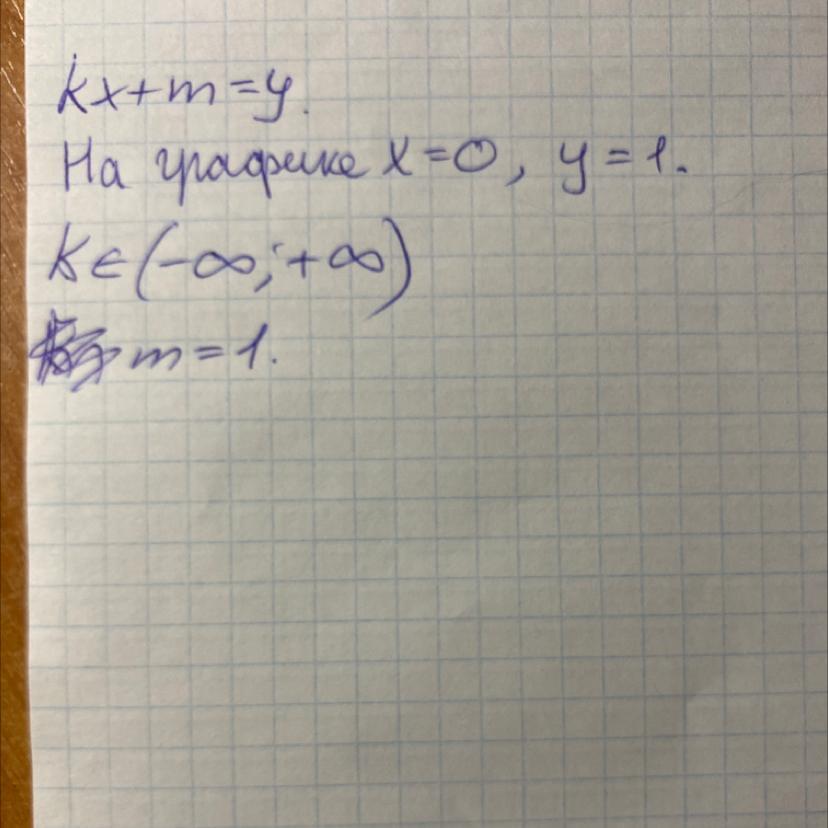 kx+m=y.
На графике x=0, y=1.
k∈(-∞;+∞)
m=1.